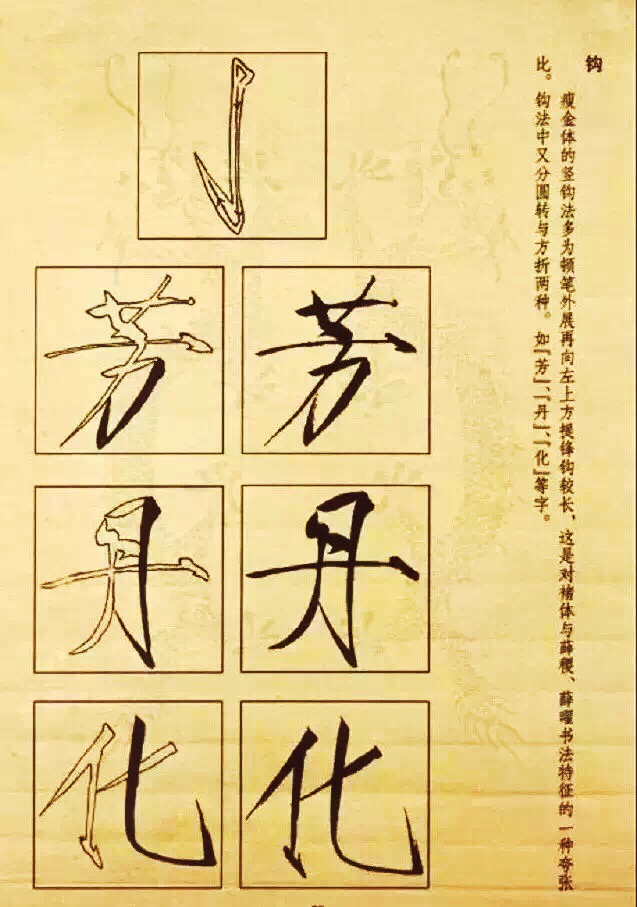 钩
瘦金体的竖钩法多为顿笔外展再向左上方提锋钩较长、这是对褚体与薛稷、薛曜书法特征的一种夸张
比。钩法中又分圆转与方折两种。如『芳』、『丹』、『化』等字。
芳 芳
丹 丹
化 化